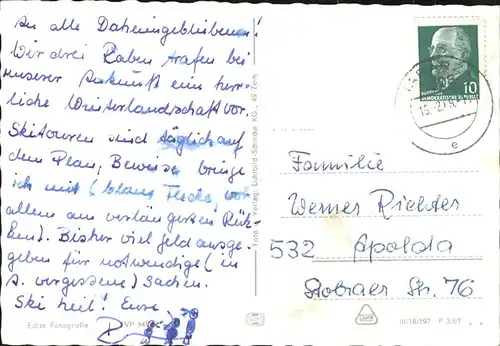 An alle Daheimgebliebenen!
Wir drei Raben trafen bei
unserer Ankunft eine herr-
liche Winterlandschaft vor.
Skitouren sind täglich auf
dem Plan, Beweise bringe
ich mit (blaue Flecke, vor
allem am verlängerten Rük-
ken). Bisher viel Geld ausge-
geben für notwendige (in
A. vergessene) Sachen.
Ski heil! Eure
Echte Fotografie
Foto u. Verlag: Lichtbild-
KG., 49 Zeitz
10
DEUTSCHE
DEMOKRATISCHE REPUBLIK
e
Familie
Werner Richter
532 Apolda
Stobraer Str. 76
III/18/197 P 3/67